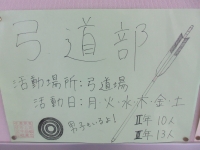 弓道部
活動場所：弓道場
活動日：月・火・水・木・金・土
男子もいるよ！
Ⅱ年 10人
Ⅲ年 13人